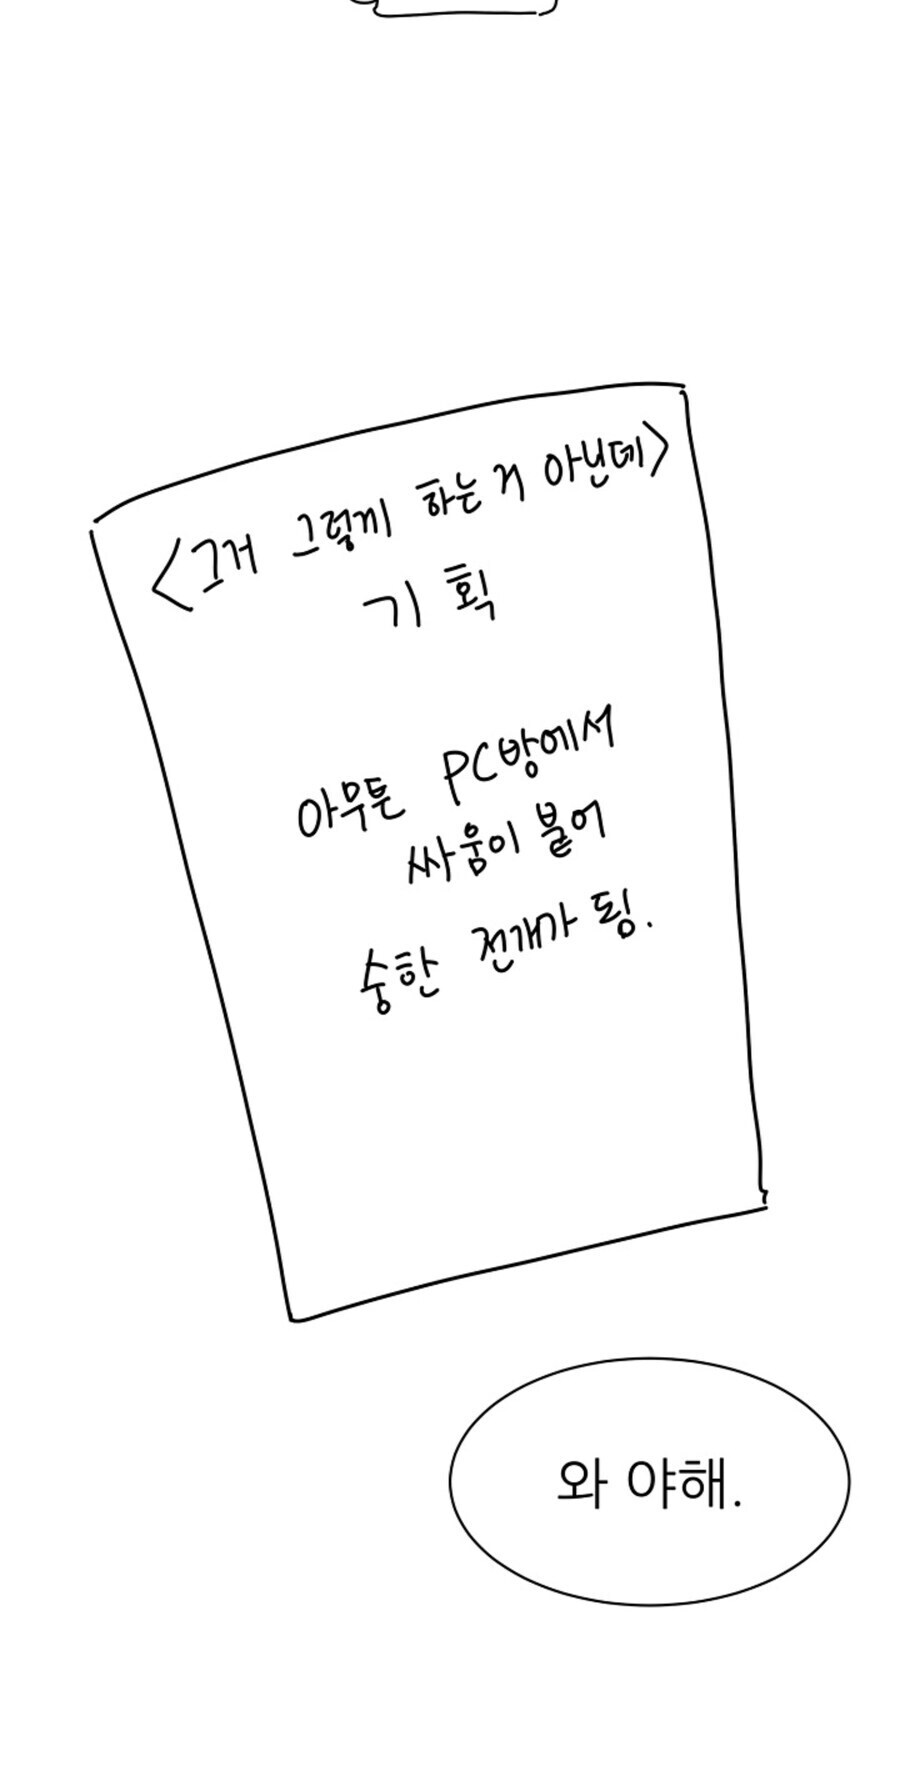 <그거 그렇게 하는거 아닌데>
기획
아무튼 PC방에서
싸움이 붙어
숭한 전개가 됨.
와 야해.